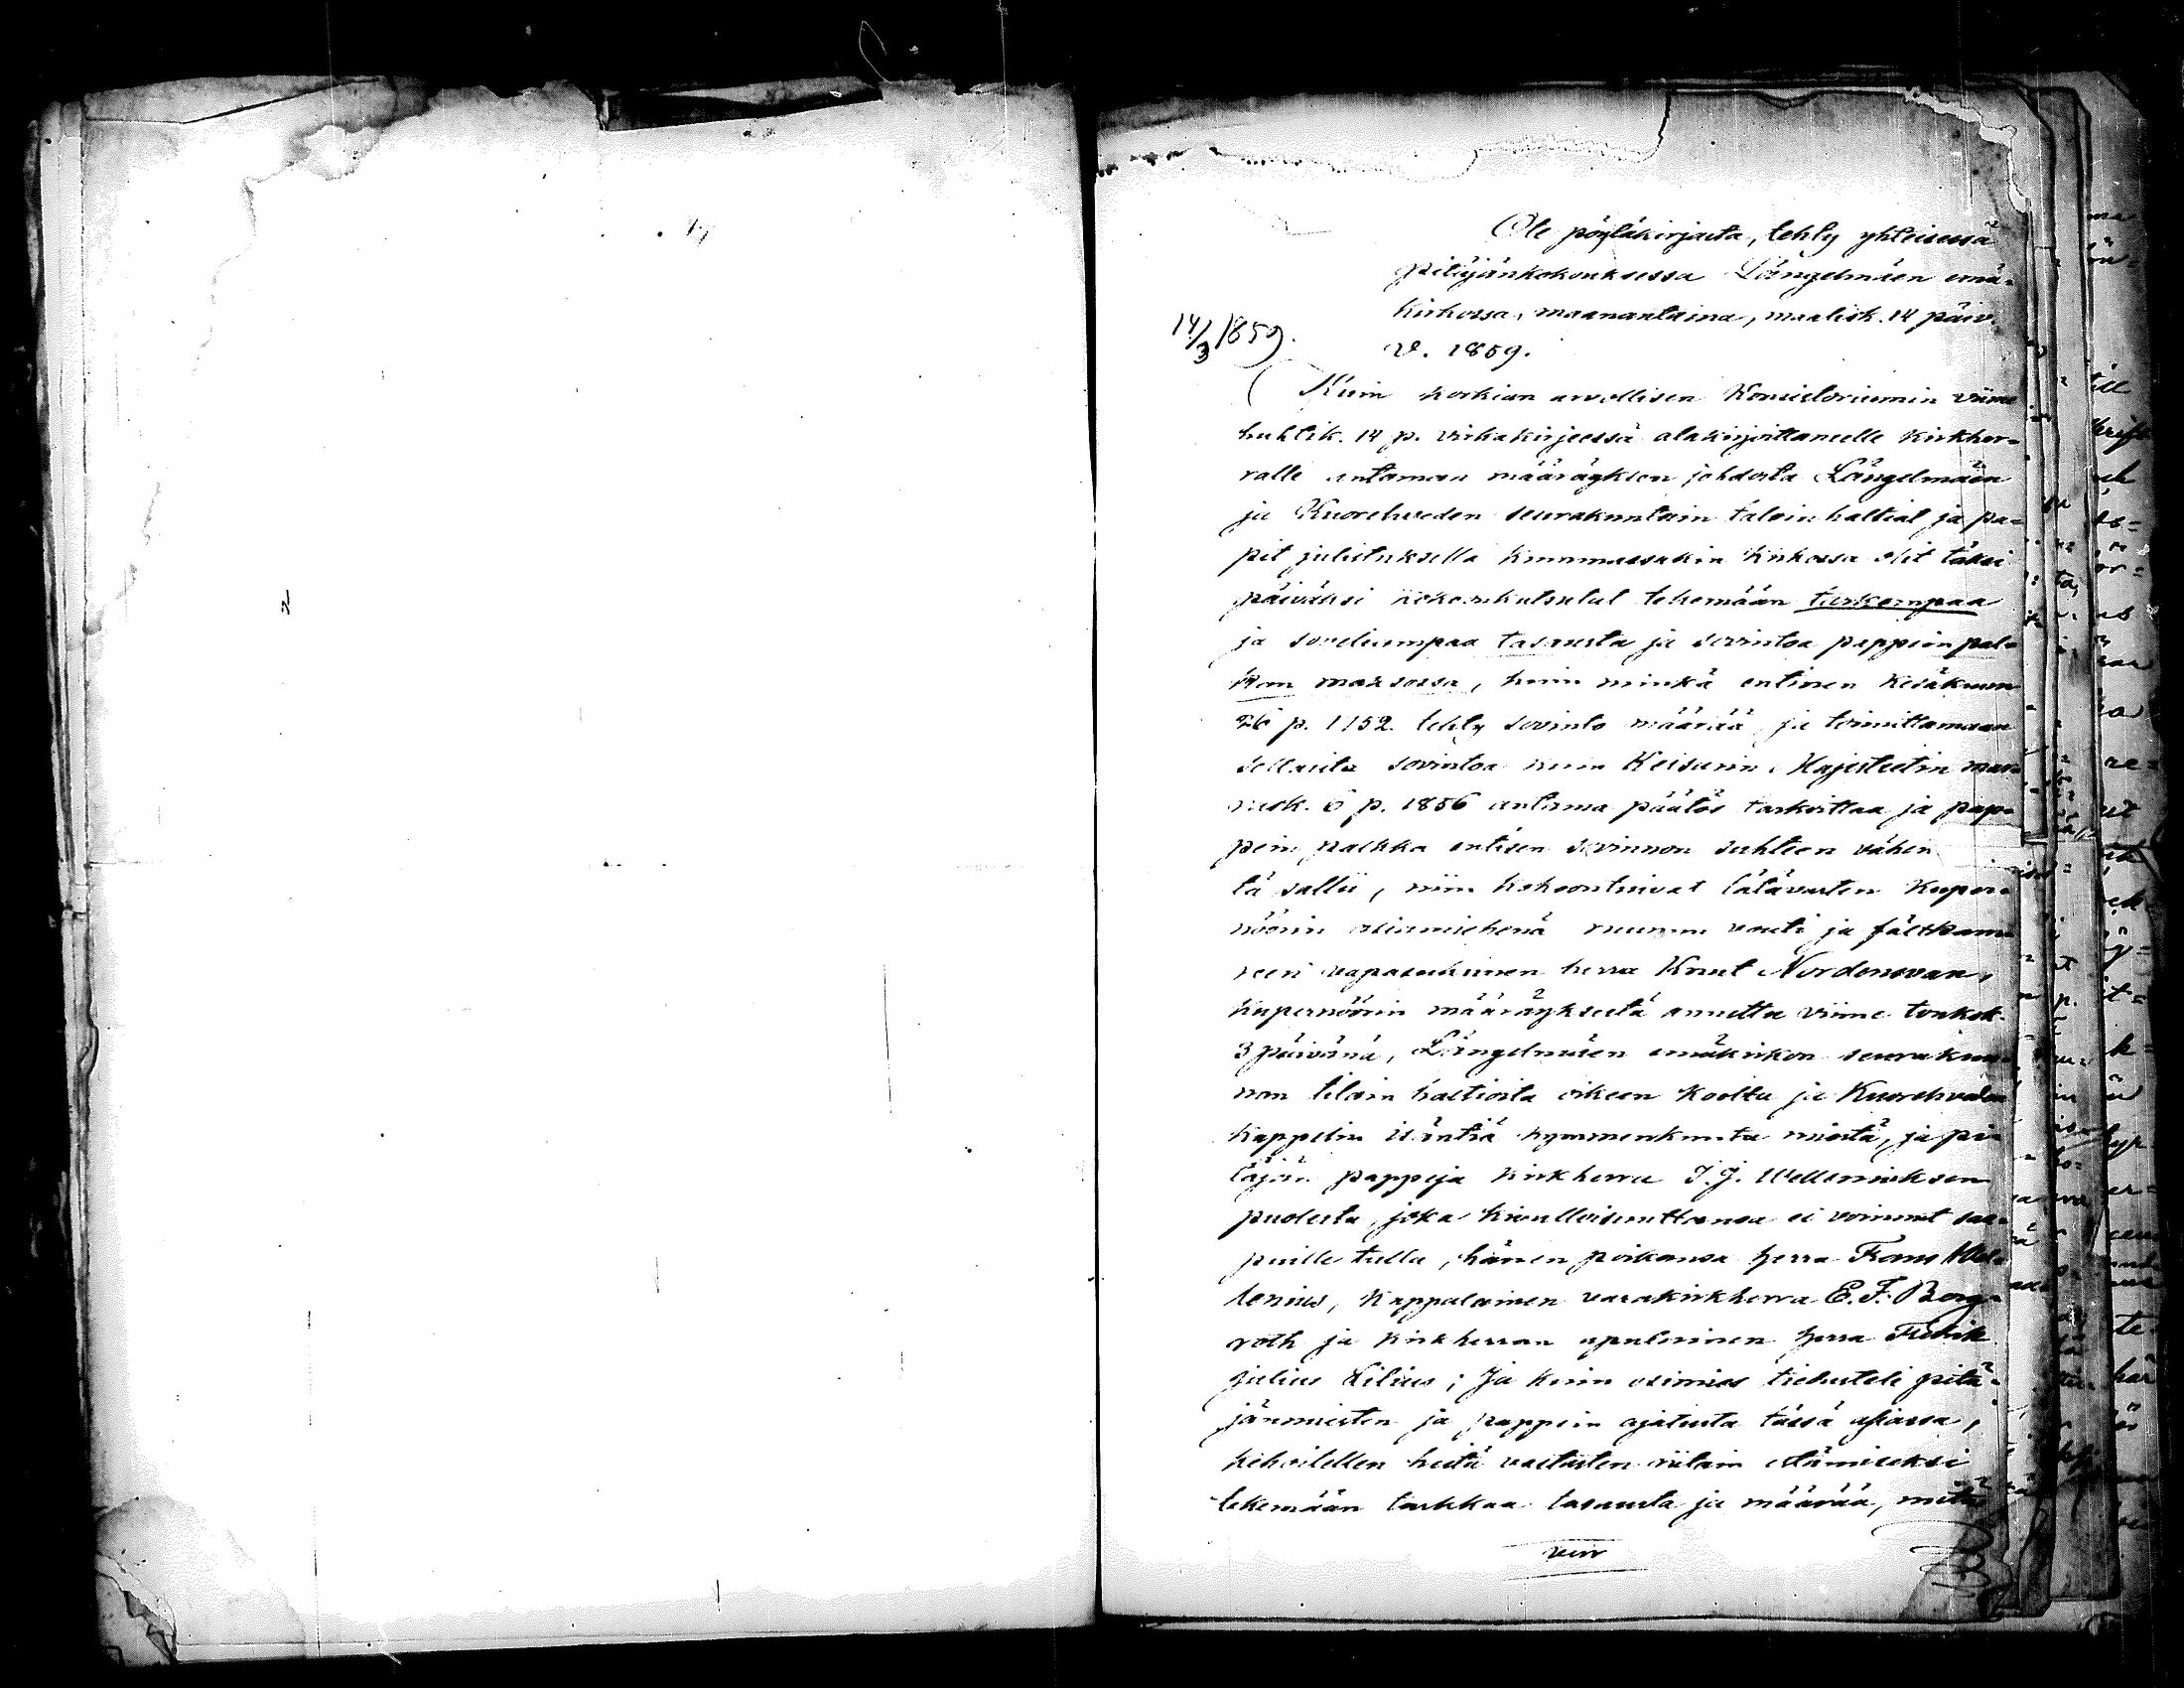 Ote pöytäkirjasta, tehty yhteisessä
pitäjänkokouksessa Längelmäen emä-
kirkossa, maanantaina, maalisk. 14 päiv.
v. 1859.
14/3 1859.
Kuin korkian arvollisen Konsistoriumin viime
huhtik. 14 p. virkakirjeessä alakirjoittaneelle kirkher-
ralle antaman määräyksen johdosta Längelmäen
ja Kuorehveden seurakuntain taloin haltiat ja pa-
pit julistuksella kummassakin kirkossa olit täksi
päiväksi kokoonkutsutut tekemään tarkempaa
ja soveliampaa tasausta ja sovintoa pappein pal-
kan maksossa, kuin minkä entinen kesäkuun
26 p. 1752. tehty sovinto määrää, ja toimittamaan
sellaista sovintoa kuin Keisarin Majesteetin mar-
rask. 6 p. 1856 antama päätös tarkoittaa ja pap-
pein palkka entisen sovinnon suhteen vähen
tä sallii, niin kokoontuivat tätävasten kuper-
nöörin asiamiehenä ruunun vouti ja
vapasukuinen herra Knut Nordensvan,
kupernöörin määräyksestä annettu viime toukok.
3 päivänä, Längelmäen emäkirkon seurakun-
nan tilain haltioita oikeen koolta ja Kuorehveden
kappelin isäntiä kymmenkunta miestä, ja pi-
täjän pappeja kirkherra J. J. Welleniuksen
puolesta, joka kivulloisuuttansa ei voinnut saa-
puille tulla, hänen poikansa herra Frans Wel-
lenius, kappalainen varakirkherra E. F. Berg-
roth ja kirkherran apulainen herra Fredrik
Julius Lilius; Ja kuin asimies tiedusteli pitä-
jänmiesten ja pappein ajatusta tässä asiassa,
kehoitellen heitä vastasten riitain estämiseksi
tekemään tarkkaa tasausta ja määrää, mitä